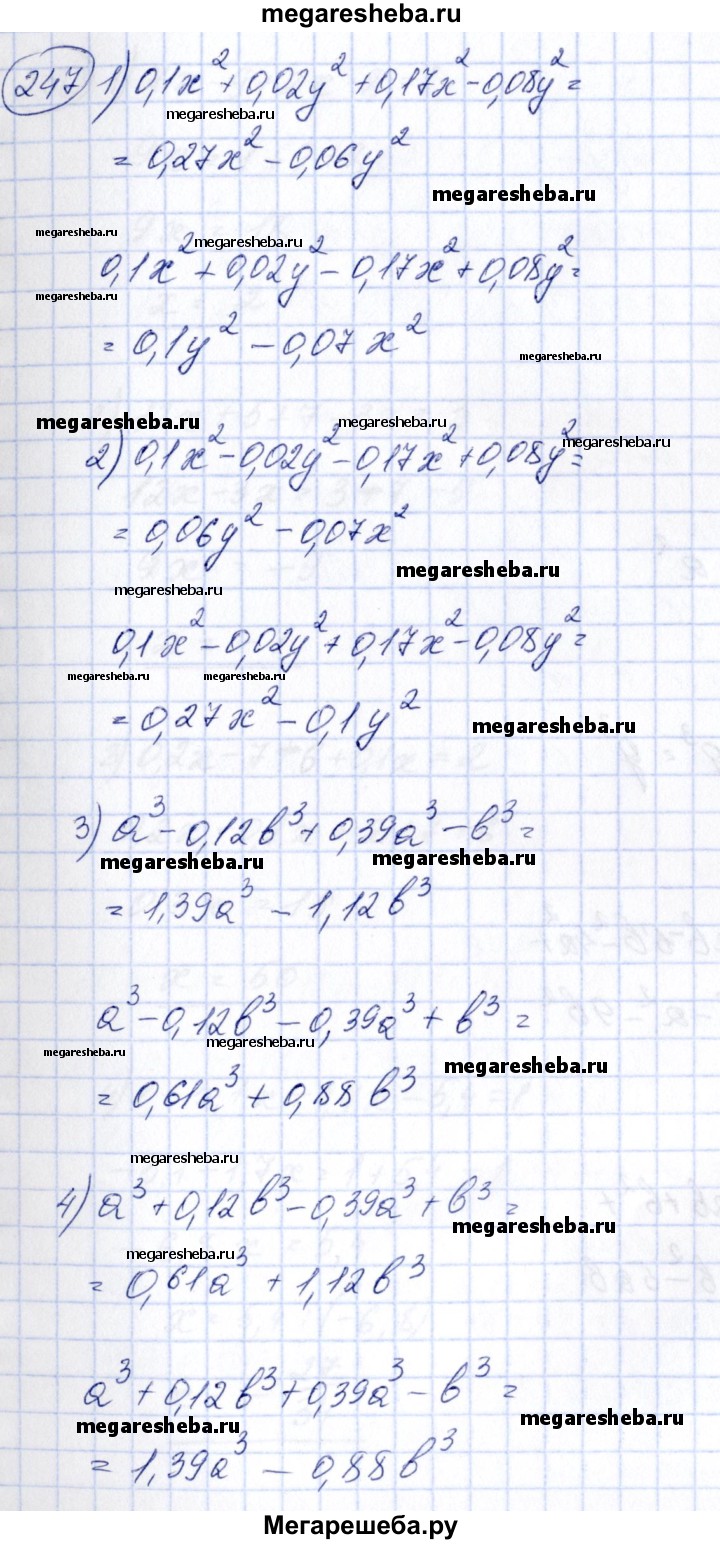 megaresheba.ru
247 1) 0,1x² + 0,02y² + 0,17x² - 0,08y² =
megaresheba.ru megaresheba.ru
= 0,27x² - 0,06y²
megaresheba.ru
megaresheba.ru megaresheba.ru
0,1x² + 0,02y² - 0,17x² + 0,08y² =
megaresheba.ru
= 0,1y² - 0,07x²
megaresheba.ru
megaresheba.ru megaresheba.ru megaresheba.ru
2) 0,1x² - 0,02y² - 0,17x² + 0,08y² =
= 0,06y² - 0,07x²
megaresheba.ru
megaresheba.ru
0,1x² - 0,02y² + 0,17x² - 0,08y² =
megaresheba.ru megaresheba.ru
= 0,27x² - 0,1y²
megaresheba.ru
3) a³ - 0,12b³ + 0,39a³ - b³ =
megaresheba.ru megaresheba.ru
= 1,39a³ - 1,12b³
a³ - 0,12b³ - 0,39a³ + b³ =
megaresheba.ru megaresheba.ru megaresheba.ru
= 0,61a³ + 0,88b³
megaresheba.ru
4) a³ + 0,12b³ - 0,39a³ + b³ =
megaresheba.ru
megaresheba.ru
= 0,61a³ + 1,12b³
a³ + 0,12b³ + 0,39a³ - b³ =
megaresheba.ru megaresheba.ru
= 1,39a³ - 0,88b³
Мегарешеба.ру